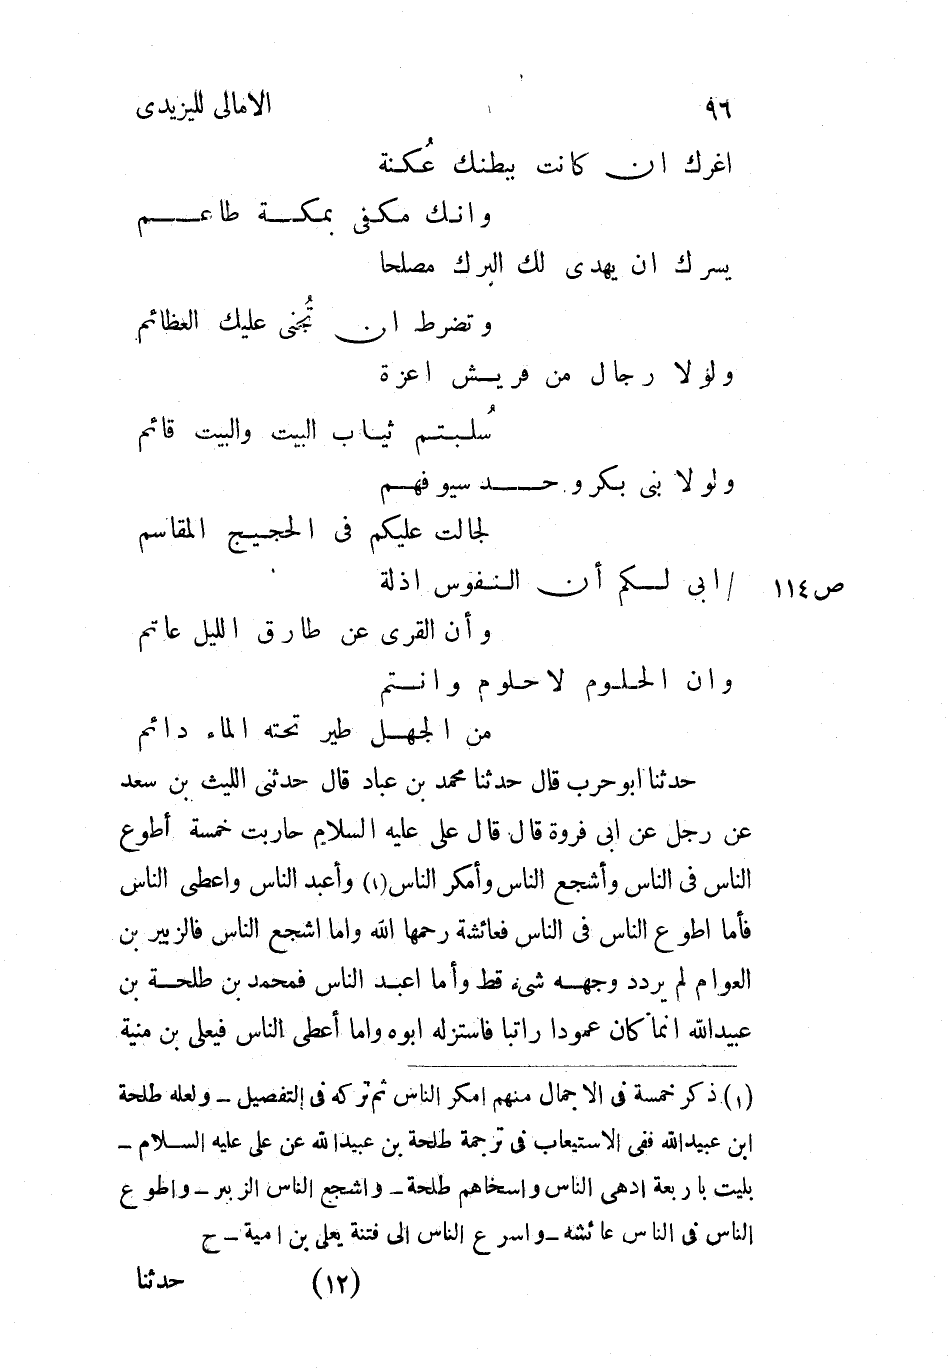 ٩٦ الامالى لليزيدى
اغرك ان كانت ببطنك عُكنة
وانك مكفى بمكة طاعم
يسرك ان يهدى لك البرك مصلحا
وتضرط ان تُجنى عليك العظائم
ولولا رجال من قريش اعزة
سُلبتم ثياب البيت والبيت قائم
ولولا بنى بكر وحد سيوفهم
لجالت عليكم فى الحجيج المقاسم
ص ١١٤ /ابى لكم أن النفوس اذلة
وأن القرى عن طارق الليل عاتم
وان الحلوم لا حلوم وانتم
من الجهل طير تحته الماء دائم
حدثنا ابو حرب قال حدثنا محمد بن عباد قال حدثنى الليث بن سعد
عن رجل عن ابى فروة قال قال على عليه السلام حاربت خمسة أطوع
الناس فى الناس وأشجع الناس وأمكر الناس(١) وأعبد الناس واعطى الناس
فأما اطوع الناس فى الناس فعائشة رحمها الله واما اشجع الناس فالزبير بن
العوام لم يردد وجهه شىء قط وأما اعبد الناس فمحمد بن طلحة بن
عبيدالله انما كان عمودا راتبا فاستزله ابوه واما أعطى الناس فيعلى بن منية
(١) ذكر خمسة فى الاجمال منهم امكر الناس ثم تركه فى التفصيل ــ ولعله طلحة
ابن عبيدالله ففى الاستيعاب فى ترجمة طلحة بن عبيدالله عن على عليه السلام ــ
بليت باربعة ادهى الناس واسخاهم طلحة ــ واشجع الناس الزبير ــ واطوع
الناس فى الناس عائشه ــ واسرع الناس الى فتنة يعلى بن امية ــ ح
(١٢) حدثنا